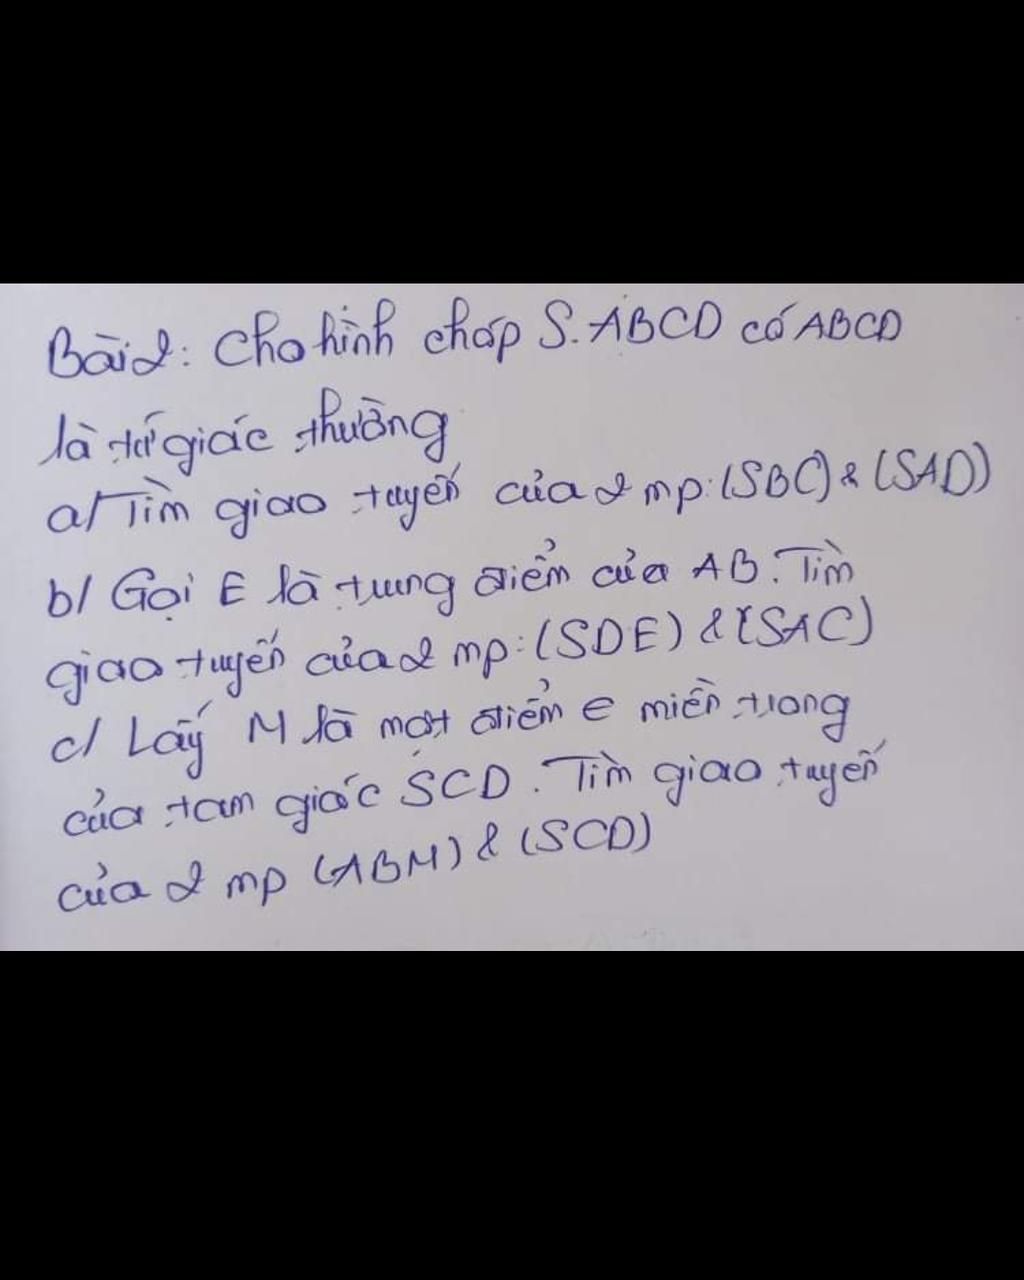 Bài 2: Cho hình chóp S.ABCD có ABCD
là tứ giác thường
a/ Tìm giao tuyến của 2 mp: (SBC) & (SAD)
b/ Gọi E là trung điểm của AB. Tìm
giao tuyến của 2 mp: (SDE) & (SAC)
c/ Lấy M là một điểm e miền trong
của tam giác SCD. Tìm giao tuyến
của 2 mp (ABM) & (SCD)